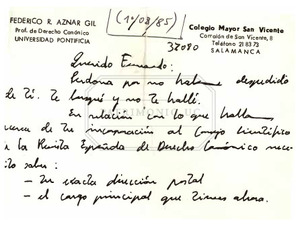 FEDERICO R. AZNAR GIL
Prof. de Derecho Canónico
UNIVERSIDAD PONTIFICIA
(1-/08/85)
Colegio Mayor San Vicente
Corralón de San Vicente, 8
Teléfono 21 83 73
37080 SALAMANCA
Querido Fernando:
Perdona por no haberme despedido
de ti. Te busqué y no te hallé.
En relación con lo que hablamos
acerca de tu incorporación al Consejo Científico
de la Revista Española de Derecho Canónico nece-
sito saber:
- tu exacta dirección postal
- el cargo principal que tienes ahora.